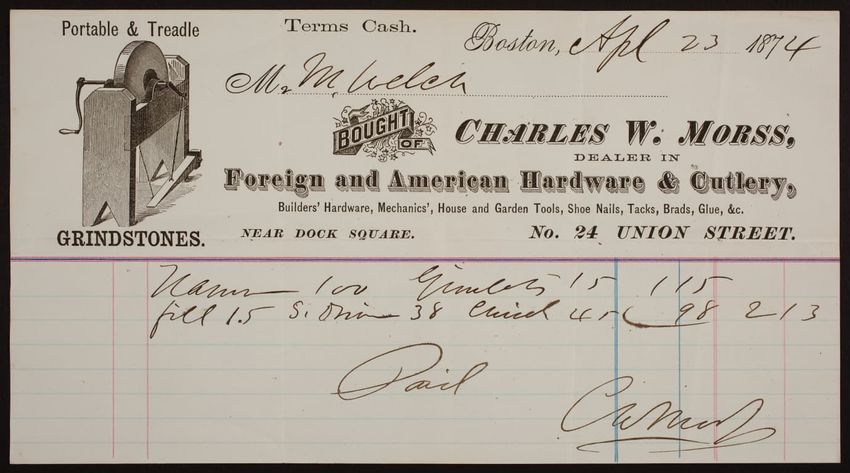 Portable & Treadle
Terms Cash.
Boston, Apl 23 1874
Mr M. Welch
BOUGHT OF
CHARLES W. MORSS,
DEALER IN
Foreign and American Hardware & Cutlery,
Builders' Hardware, Mechanics', House and Garden Tools, Shoe Nails, Tacks, Brads, Glue, &c.
GRINDSTONES.
NEAR DOCK SQUARE.
No. 24 UNION STREET.
100 Gimlets 15 1 15
fill 15 S. Driv 38 Chisel 45 98 2 13
Paid
C W Morss